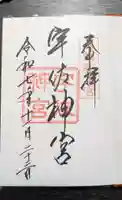 奉拝
宇佐神宮
令和七年十一月二十三日